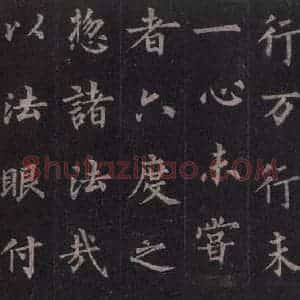 行万行未
一心未嘗
者六度之
惣諸法哉
以法眼付
Shufazidao.COM